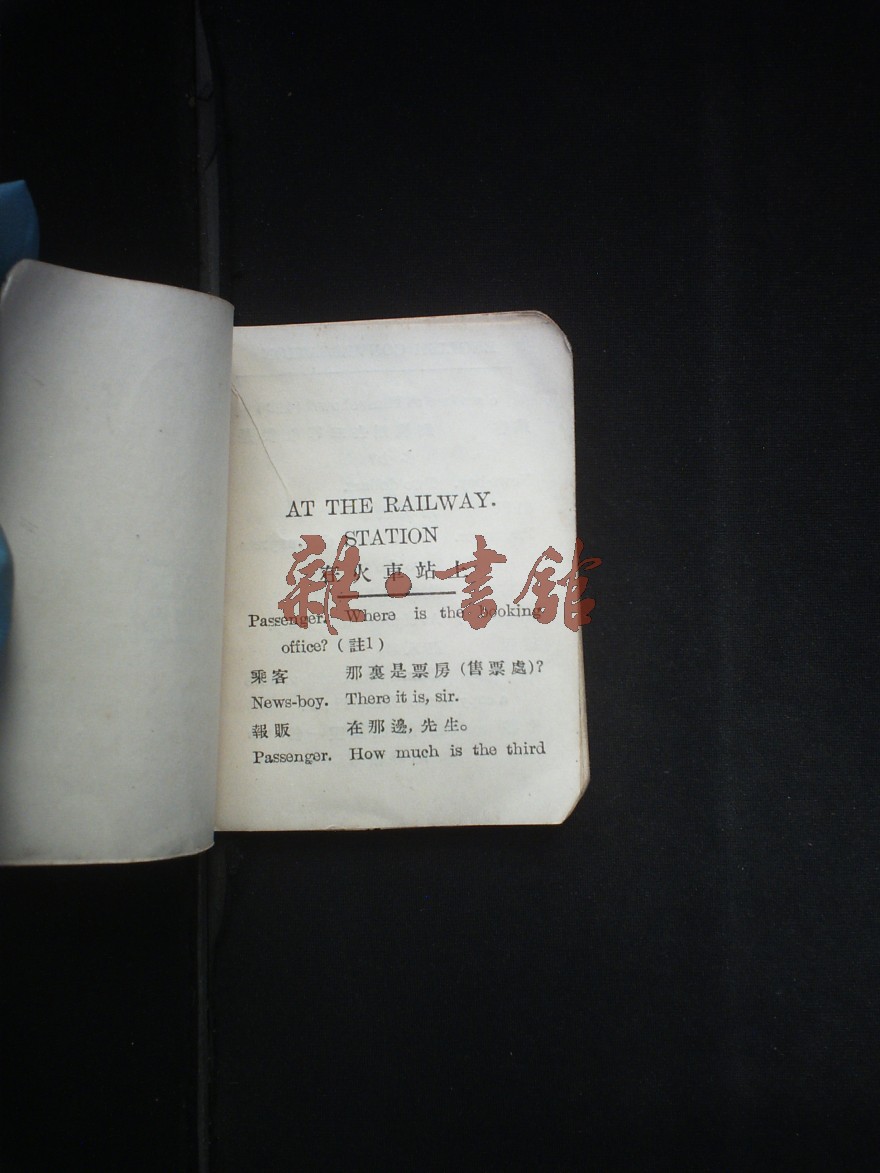 AT THE RAILWAY.
STATION
在火車站上
雜·書館
Passenger. Where is the booking
office? (註1)
乘客 那裏是票房(售票處)?
News-boy. There it is, sir.
報販 在那邊,先生。
Passenger. How much is the third